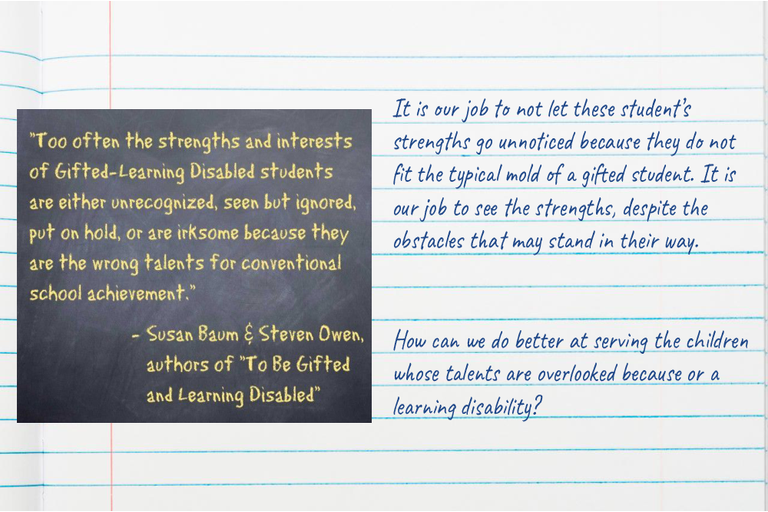 "Too often the strengths and interests
of Gifted-Learning Disabled students
are either unrecognized, seen but ignored,
put on hold, or are irksome because they
are the wrong talents for conventional
school achievement."
- Susan Baum & Steven Owen,
authors of "To Be Gifted
and Learning Disabled"
It is our job to not let these student's
strengths go unnoticed because they do not
fit the typical mold of a gifted student. It is
our job to see the strengths, despite the
obstacles that may stand in their way.
How can we do better at serving the children
whose talents are overlooked because or a
learning disability?